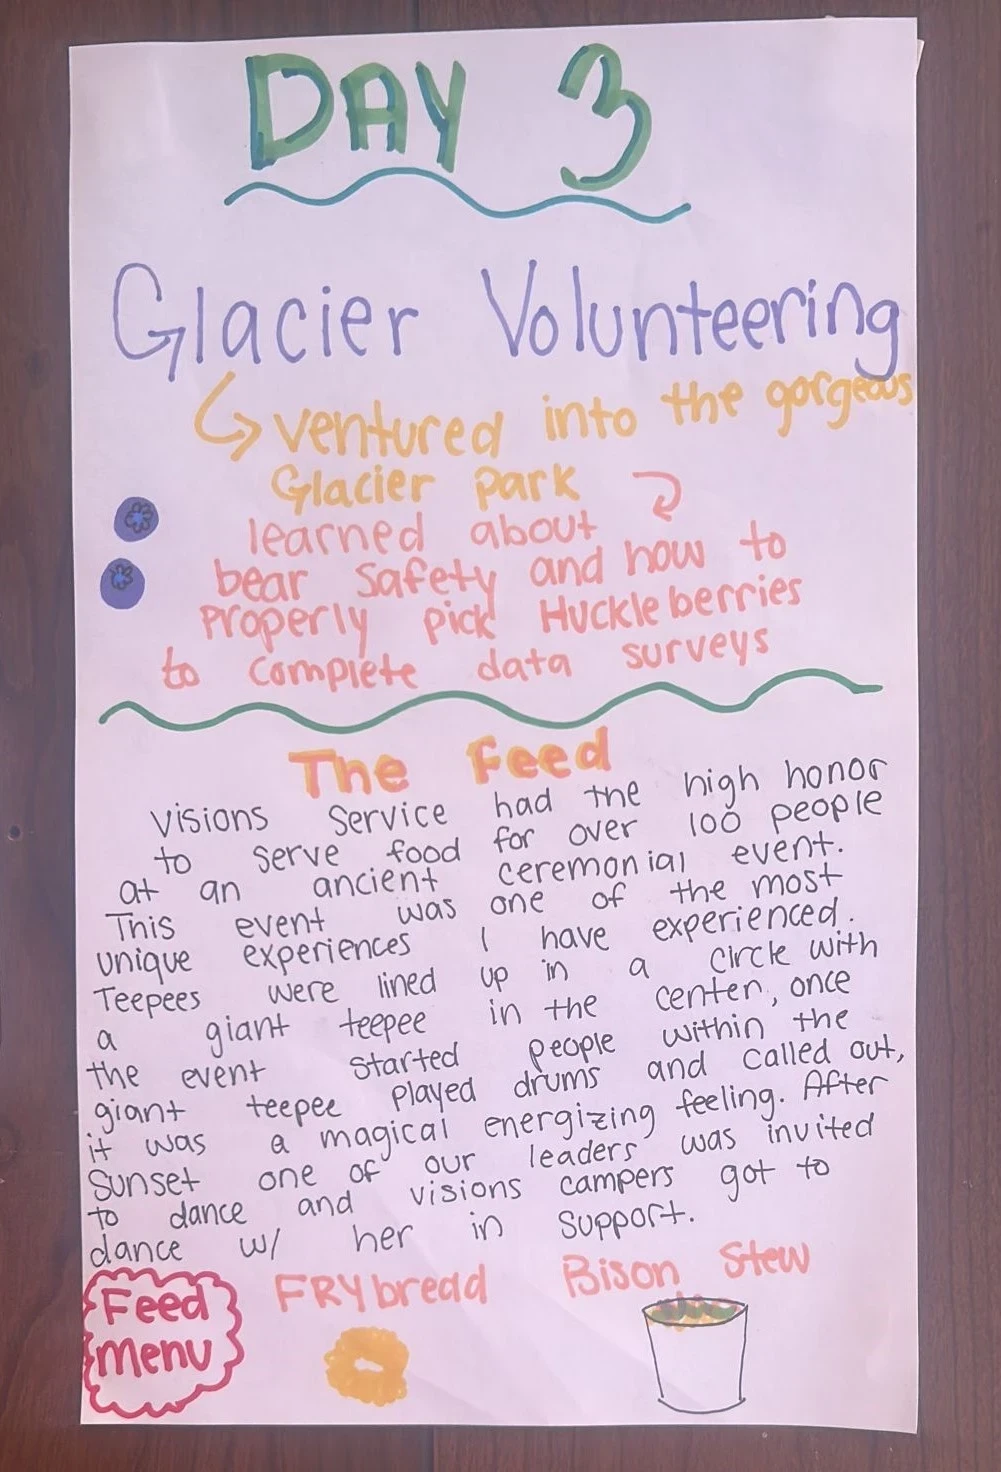 DAY 3
Glacier Volunteering
ventured into the gorgeous
Glacier Park
learned about
bear safety and how to
properly pick Huckleberries
to complete data surveys
The Feed
Visions Service had the high honor
to serve food for over 100 people
at an ancient ceremonial event.
This event was one of the most
unique experiences I have experienced.
Teepees were lined up in a circle with
a giant teepee in the centen, once
the event started people within the
giant teepee played drums and called out,
it was a magical energizing feeling. After
sunset one of our leaders was invited
to dance and visions campers got to
dance w/ her in support.
Feed
menu
FRYbread
Bison Stew